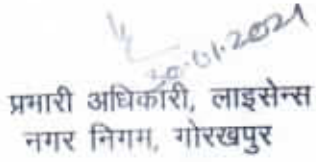 20.01.2021
प्रभारी अधिकारी, लाइसेन्स
नगर निगम, गोरखपुर